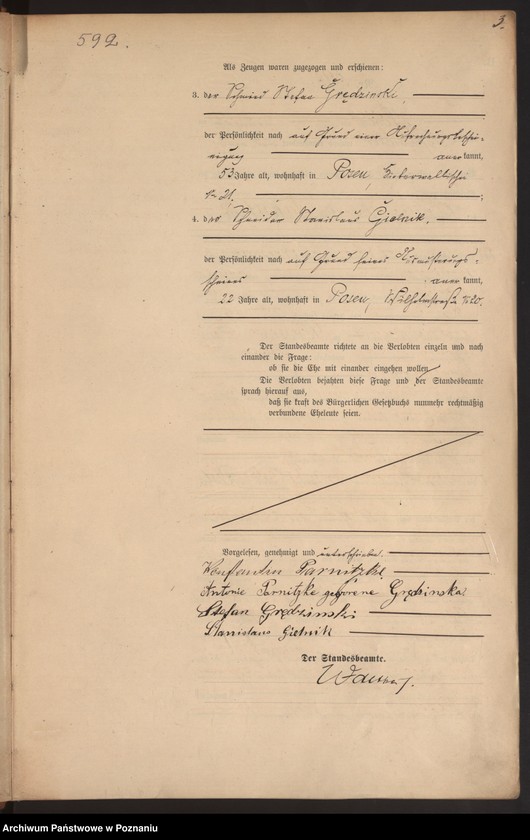 592.
3.
Als Zeugen waren zugezogen und erschienen:
3. der Schmied Stefan Grędzinski
der Persönlichkeit nach auf Grund einer
anerkannt,
53 Jahre alt, wohnhaft in Posen,
№ 21. ;
4. der Schneider Stanislaus Gielnik.
der Persönlichkeit nach auf Grund seines Militär
scheines anerkannt,
22 Jahre alt, wohnhaft in Posen, Wilhelmstraße № 20.
Der Standesbeamte richtete an die Verlobten einzeln und nach
einander die Frage:
ob sie die Ehe mit einander eingehen wollen
Die Verlobten bejahten diese Frage und der Standesbeamte
sprach hierauf aus,
daß sie kraft des Bürgerlichen Gesetzbuchs nunmehr rechtmäßig
verbundene Eheleute seien.
Vorgelesen, genehmigt und unterschrieben.
Konstantin Parnitzke
Antonie Parnitzke geborene Grędzinska
Stefan Grędzinski
Stanislaus Gielnik
Der Standesbeamte.
Archiwum Państwowe w Poznaniu